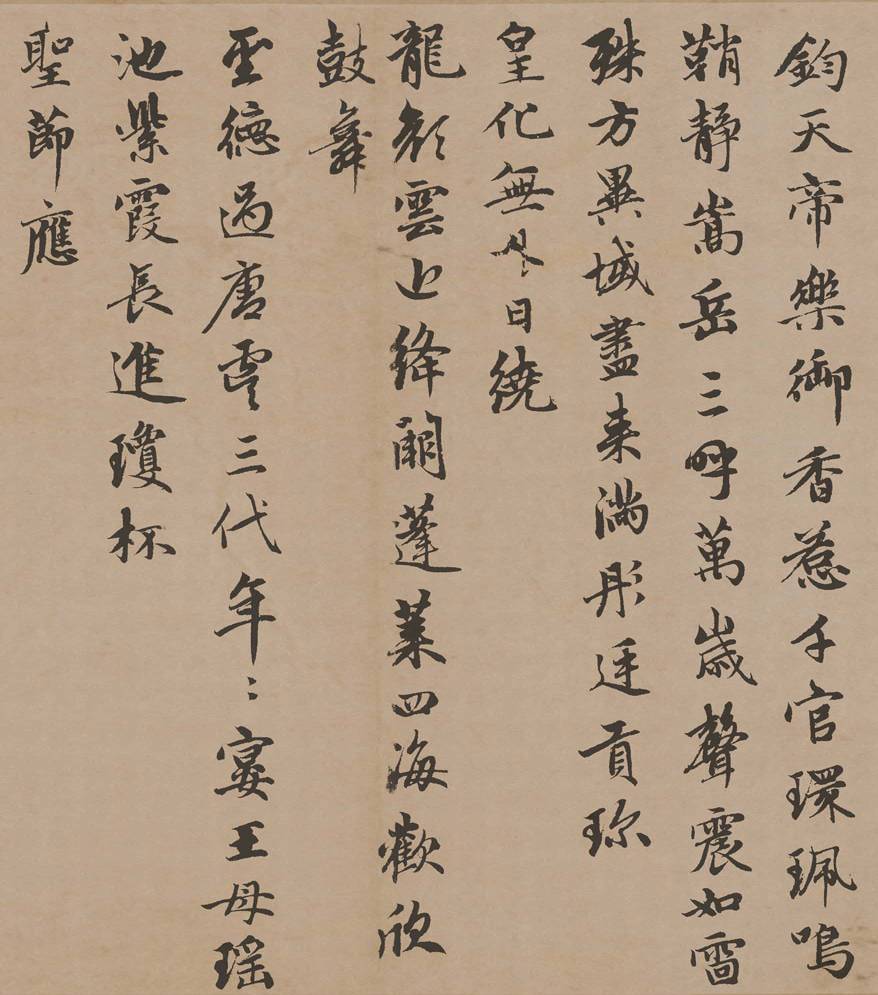 鈞天帝樂御香惹千官環珮鳴
鞘静嵩岳三呼萬歲聲震如雷
殊方異域盡来滿彤廷貢珎
皇化無外日繞
龍顔雲近絳闕蓬莱四海歡欣
鼓舞
聖德過唐虞三代年〻宴王母瑶
池紫霞長進瓊杯
聖節應